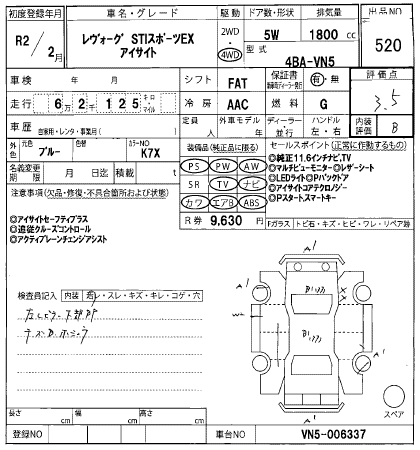 初度登録年月
車名・グレード
駆動
ドア数・形状
排気量
出品NO
R2 / 2月
レヴォーグ STIスポーツEX
アイサイト
2WD
・
4WD
5W
1800 cc
型式
4BA-VN5
520
車検 年 月
シフト
FAT
保証書
有・無
評価点
3.5
走行 6万2千125 キロ・マイル
冷房
AAC
燃料
G
車歴
自家用・レンタ・事業用( )
定員 人
外車モデル 年
ディーラー・並行
ハンドル
左・右
内装評価
B
外色
元色
ブルー
色替
カラーNO
K7X
装備品(純正品に限る)
セールスポイント(正常に作動するもの)
名義変更期限 月 日迄
積載 t
PS PW AW
SR TV ナビ
カワ エアB ABS
◎純正11.6インチナビ,TV
◎マルチビューモニター◎レザーシート
◎LEDライト◎Pバックドア
◎アイサイトコアテクノロジー
◎Pスタートスマートキー
注意事項(欠品・修復・不具合箇所および状態)
R券 9,630 円
Fガラス トビ石・キズ・ヒビ・ワレ・リペア跡
◎アイサイトセーフティプラス
◎追従クルーズコントロール
◎アクティブレーンチェンジアシスト
検査員記入
内装 若レ・スレ・キズ・キレ・コゲ・穴
A1
A1
A1
スペア
長さ cm
幅 cm
高さ cm
登録NO
車台NO
VN5-006337